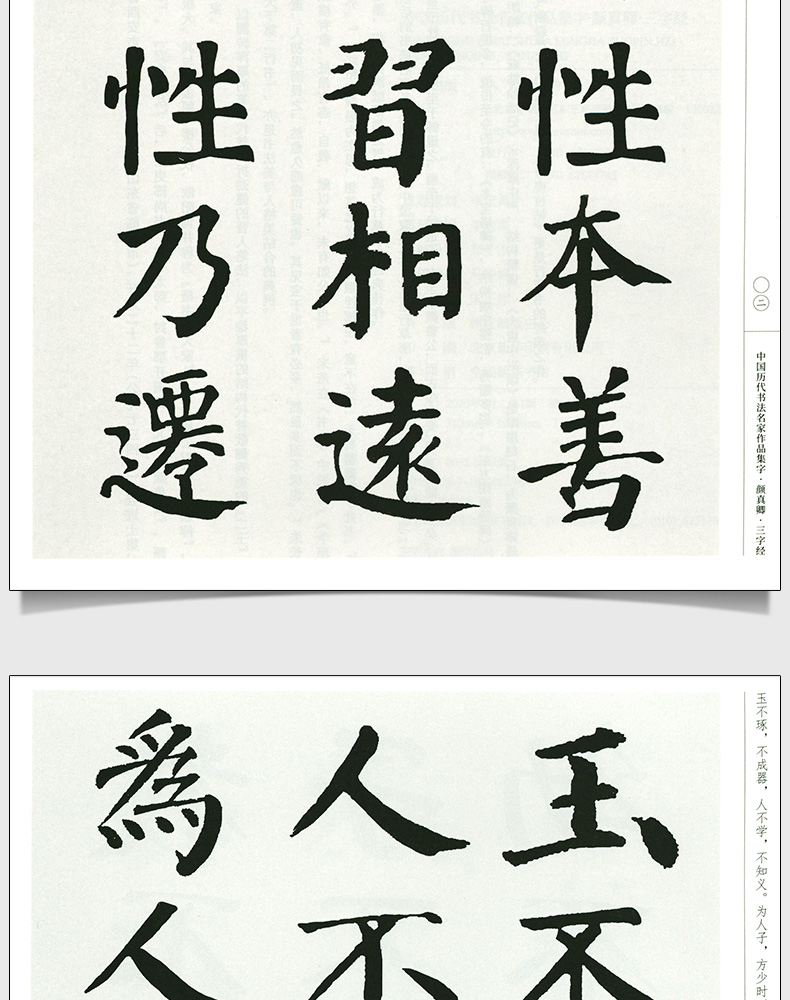 性本善
習相遠
性乃遷
〇二
中国历代书法名家作品集字·颜真卿·三字经
玉不
人不
為人
玉不琢，不成器，人不学，不知义。为人子，方少时